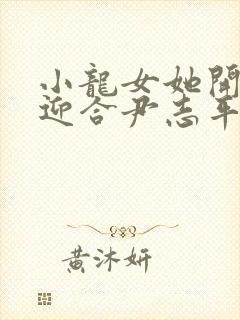 小龍女她開
迎合尹志平
黃沐妍